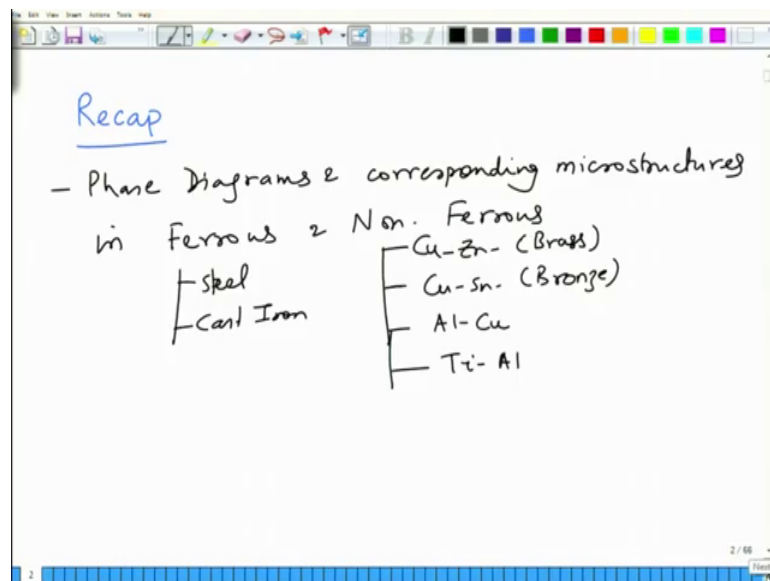 File Edit View Insert Actions Tools Help
B I
Recap
- Phase Diagrams & corresponding microstructures
in Ferrous & Non. Ferrous
Steel
Cast Iron
Cu-Zn- (Brass)
Cu-Sn- (Bronze)
Al-Cu
Ti-Al
2 / 66
2
Next